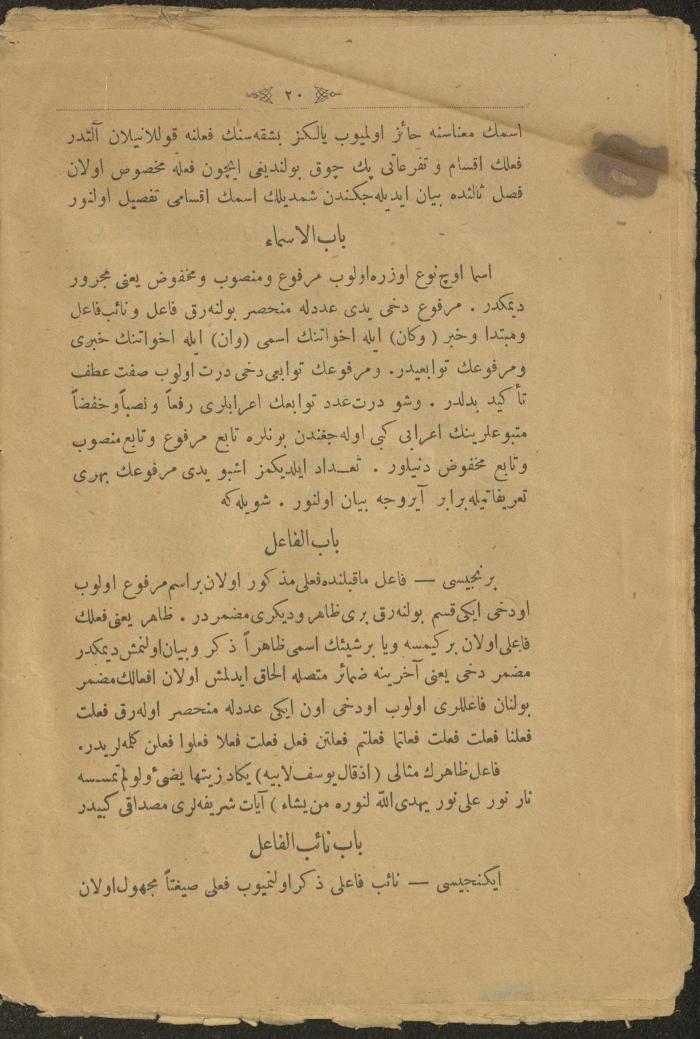 ٢٠
اسمك معناسنه حائز اولميوب يالكز بشقه‌سنك فعلنه قوللانيلان آلتدر
فعلك اقسام و تفرعاتى پك چوق بولنديغى ايچون فعله مخصوص اولان
فصل ثالثده بيان ايديله‌جكندن شمديلك اسمك اقسامى تفصيل اولنور
باب الاسماء
اسما اوچ نوع اوزره اولوب مرفوع ومنصوب ومخفوض يعنى مجرور
ديمكدر . مرفوع دخى يدى عددله منحصر بولنه‌رق فاعل ونائب فاعل
ومبتدا وخبر (وكان) ايله اخواتنك اسمى (وان) ايله اخواتنك خبرى
ومرفوعك توابعيدر. ومرفوعك توابعى دخى درت اولوب صفت عطف
تأكيد بدلدر . وشو درت عدد توابعك اعرابلرى رفعاً ونصباً وخفضاً
متبوعلرينك اعرابى كبى اوله‌جغندن بونلره تابع مرفوع وتابع منصوب
وتابع مخفوض دنيلور . تعـداد ايلديكمز اشبو يدى مرفوعك بهرى
تعريفاتيله برابر آيروجه بيان اولنور . شويله كه
باب الفاعل
برنجيسى — فاعل ماقبلنده فعلى مذكور اولان براسم مرفوع اولوب
اودخى ايكى قسم بولنه‌رق برى ظاهر وديكرى مضمردر . ظاهر يعنى فعلك
فاعلى اولان بركيمسه ويا برشيئك اسمى ظاهراً ذكر وبيان اولنمش ديمكدر
مضمر دخى يعنى آخرينه ضمائر متصله الحاق ايدلمش اولان افعالك مضمر
بولنان فاعللرى اولوب اودخى اون ايكى عددله منحصر اوله‌رق فعلت
فعلنا فعلت فعلت فعلتما فعلتم فعلتن فعل فعلت فعلا فعلوا فعلن كلمه‌لريدر.
فاعل ظاهرك مثالى (اذقال يوسف لابيه) يكاد زيتها يضئ ولو لم تمسسه
نار نور على نور يهدى الله لنوره من يشاء ) آيات شريفه‌لرى مصداقى كبيدر
باب نائب الفاعل
ايكنجيسى — نائب فاعلى ذكر اولنميوب فعلى صيغتاً مجهول اولان